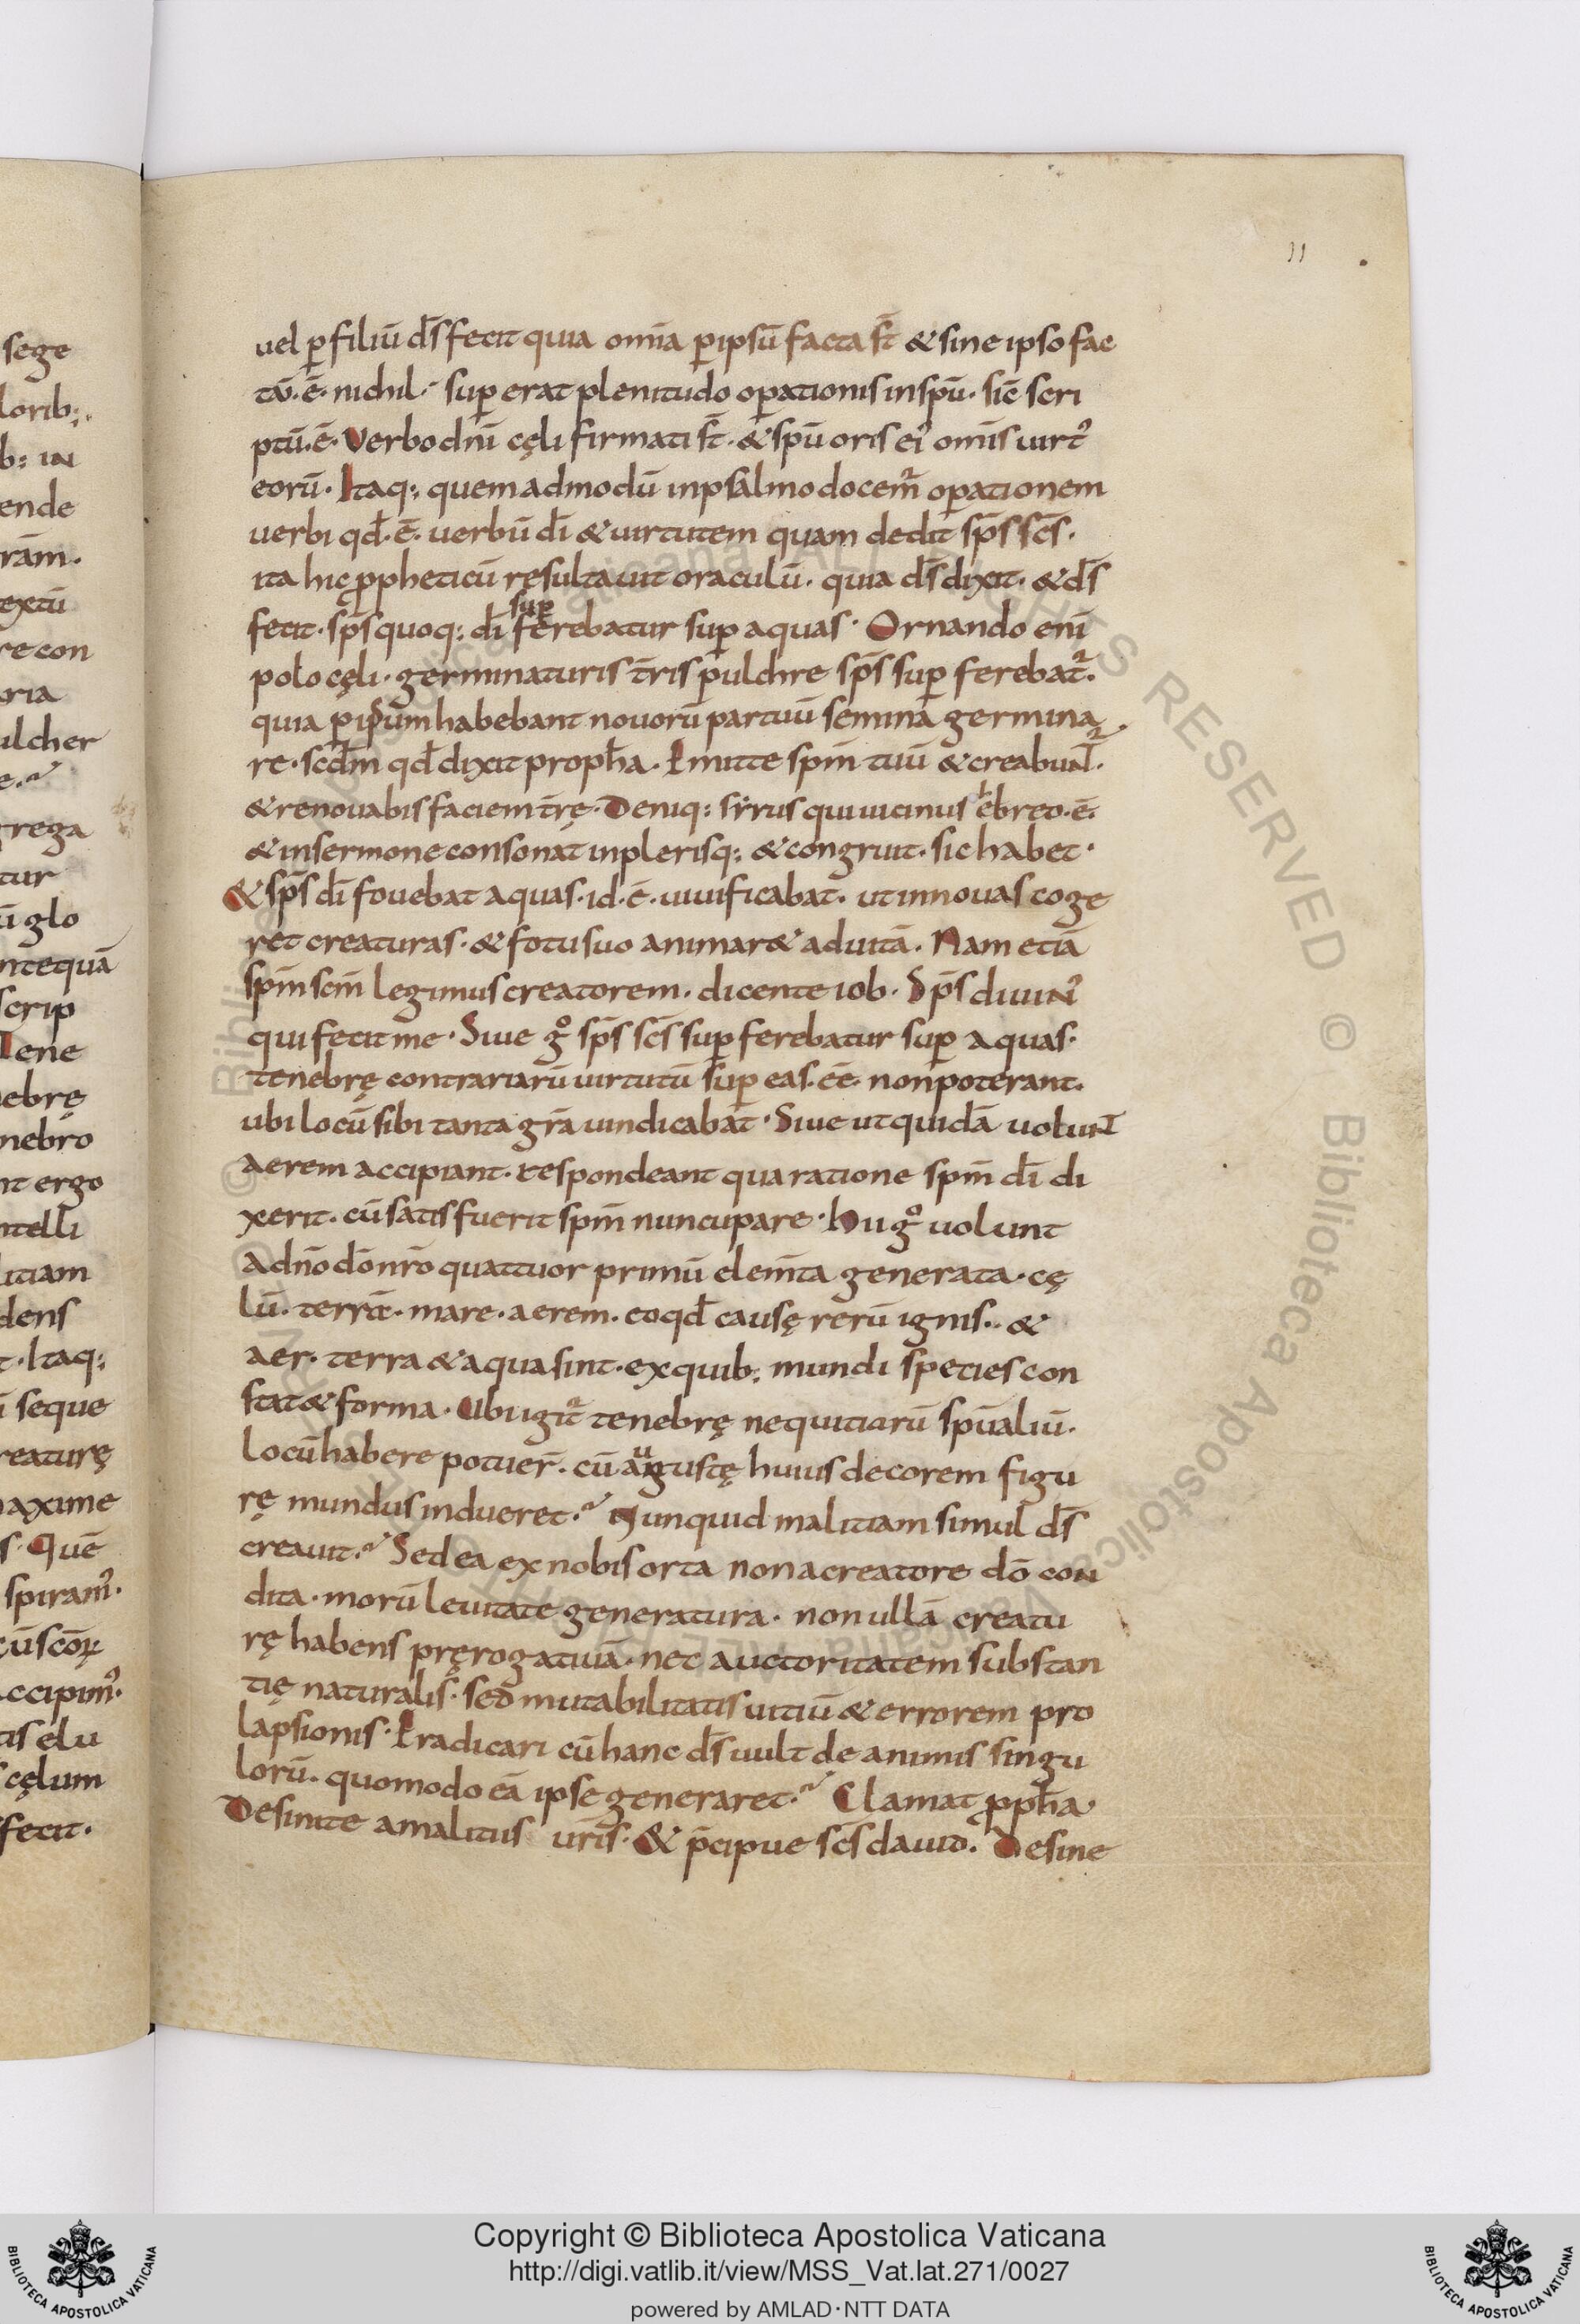 sege
lorib;.
b; IN
ende
rām.
extū
re con
oria
ulcher
e.
rega
tur
ū glo
ntequā
scrip
Iene
ebrę
nebro
nt ergo
ntelli
litiam
dens
t. Itaq;
seque
reaturę
maxime
s. Quē
spiram᾽.
cūscōꝝ
accipim᾽.
tis elu
cęlum
fecit.
11
uel ꝑ filiū dс̄ fecit quia omīa ꝑ ipsū facta st̄ & sine ipso fac
tū. ē. nichil. suꝑ erat plenitudo oꝑationis in spū. sic̄ scri
ptū. ē. Verbo dnī cęli firmati st̄. & spū oris ei᾽ omīs uirt᾽
eorū. Itaq; quemadmodū in psalmo docem̄ oꝑationem
uerbi qd̄. ē. uerbū dī & uirtutem quam dedit sp̄s sc̄s.
ita hic ꝓpheticū resultauit oraculū. quia ds̄ dixit. & ds̄
fecit. sp̄s quoq; dī suꝑ ferebatur suꝑ aquas. Ornando enī
polo cęli. germinaturis tr̄ris pulchre sp̄s suꝑ ferebat̄.
quia ꝑ ipsum habebant nouorū partuū semina germina
re. scdm̄ qd̄ dixit proph̄a. Emitte spm̄ tuū & creabunt̄.
& renouabis faciem tr̄ę. Deniq; sẏrus qui uicinus hebreo. ē.
& in sermone consonat in plerisq; & congruit. sic habet.
& sp̄s dī fouebat aquas. id. ē. uiuificabat. ut in nouas coge
ret creaturas. & fotu suo animar& ad uitā. Nam etiā
spm̄ scm̄ legimus creatorem. dicente iob. Sp̄s diuin᾽
qui fecit me. Siue gº sp̄s sc̄s suꝑ ferebatur suꝑ aquas.
tenebrę contrariarū uirtutū suꝑ eas. ēē. non poterant.
ubi locū sibi tanta grā uindicabat. Siue ut quidā uolunt
aerem accipiant. respondeant qua ratione spm̄ dī di
xerit. cū satis fuerit spm̄ nuncupare. Hii gº uolunt
a dnō dō nrō quattuor primū elem̄ta generata. cę
lū. terrā. mare. aerem. eo qd̄ causę rerū ignis. &
aer. terra & aqua sint. ex quib; mundi species con
stat & forma. Ubi igit̄ tenebrę nequitiarū spūaliū.
locū habere potuer̄. cū augustę huius decorem figu
rę mundus indueret. Nunquid malitiam simul ds̄
creauit. Sed ea ex nobis orta non a creatore dō con
dita. morū leuitate generatura. non ullā creatu
rę habens pręrogatiuā. nec auctoritatem substan
tię naturalis. sed mutabilitatis uitiū & errorem pro
lapsionis. Eradicari cū hanc ds̄ uult de animis singu
lorū. quomodo eā ipse generaret. Clamat ꝓph̄a.
Desinite a malitiis ur̄is. & p̄cipue sc̄s dauid. Desine
Copyright © Biblioteca Apostolica Vaticana
http://digi.vatlib.it/view/MSS_Vat.lat.271/0027
powered by AMLAD·NTT DATA
BIBLIOTECA APOSTOLICA VATICANA
BIBLIOTECA APOSTOLICA VATICANA